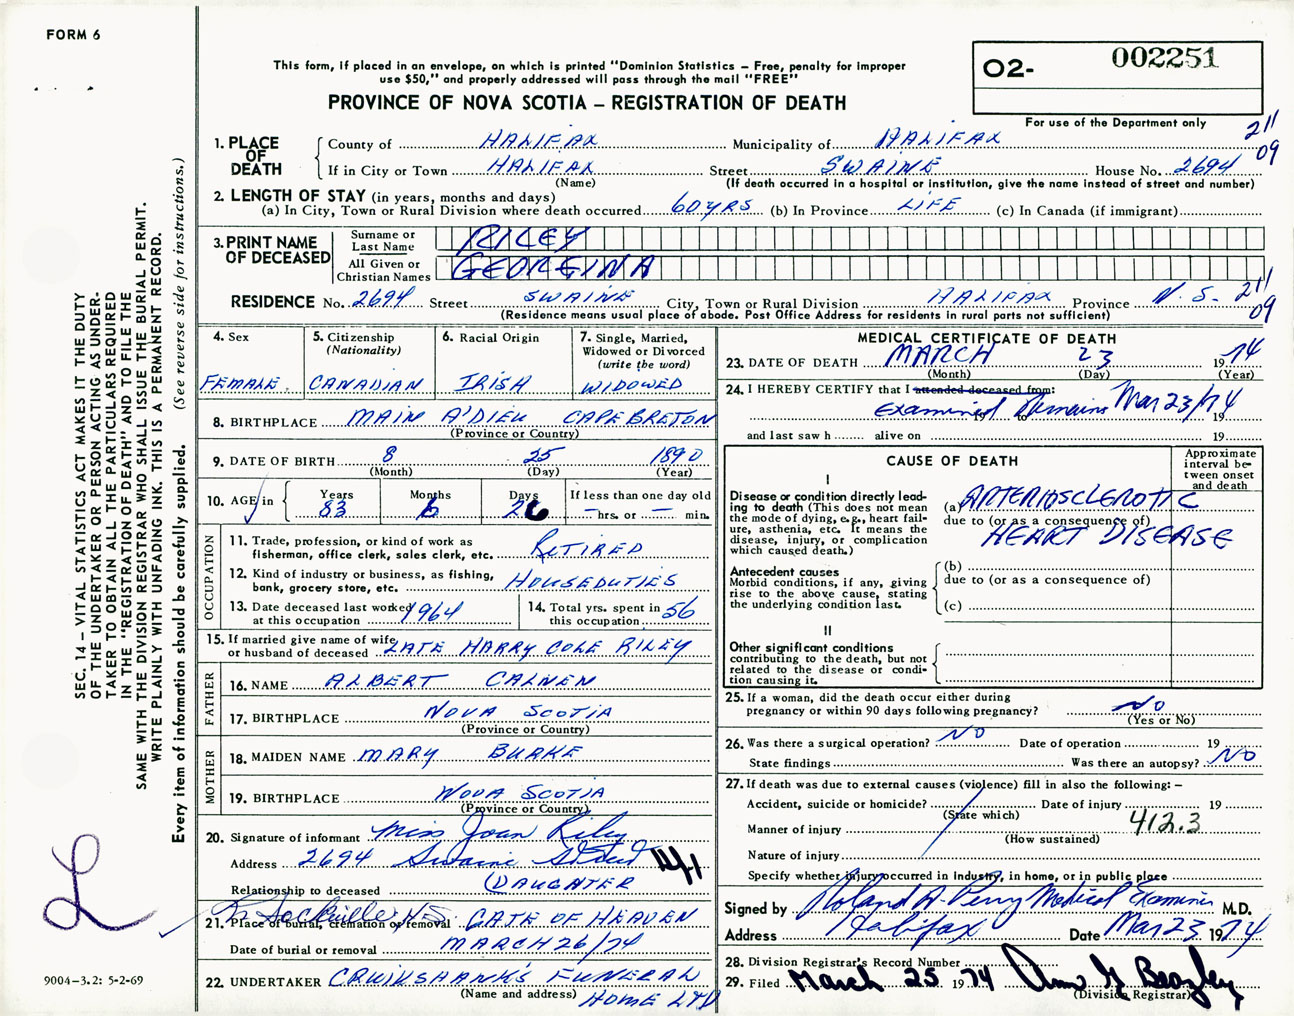 FORM 6
This form, if placed in an envelope, on which is printed "Dominion Statistics – Free, penalty for improper
use $50," and properly addressed will pass through the mail "FREE"
PROVINCE OF NOVA SCOTIA – REGISTRATION OF DEATH
O2- 002251
For use of the Department only
211
09
1. PLACE OF DEATH
County of HALIFAX Municipality of HALIFAX
If in City or Town HALIFAX Street SWAINE House No. 2694
(Name) (If death occurred in a hospital or institution, give the name instead of street and number)
2. LENGTH OF STAY (in years, months and days)
(a) In City, Town or Rural Division where death occurred 60 YRS (b) In Province LIFE (c) In Canada (if immigrant)
3. PRINT NAME OF DECEASED
Surname or Last Name RILEY
All Given or Christian Names GEORGINA
RESIDENCE No. 2694 Street SWAINE City, Town or Rural Division HALIFAX Province N.S. 211
09
(Residence means usual place of abode. Post Office Address for residents in rural parts not sufficient)
4. Sex
FEMALE
5. Citizenship
(Nationality)
CANADIAN
6. Racial Origin
IRISH
7. Single, Married,
Widowed or Divorced
(write the word)
WIDOWED
8. BIRTHPLACE MAIN A'DIEU CAPE BRETON
(Province or Country)
9. DATE OF BIRTH 8 25 1890
(Month) (Day) (Year)
10. AGE in Years 83 Months 6 Days 26 If less than one day old
— hrs. or — min.
OCCUPATION
11. Trade, profession, or kind of work as
fisherman, office clerk, sales clerk, etc. RETIRED
12. Kind of industry or business, as fishing,
bank, grocery store, etc. HOUSEDUTIES
13. Date deceased last worked
at this occupation 1964
14. Total yrs. spent in
this occupation 56
15. If married give name of wife
or husband of deceased LATE HARRY COLE RILEY
FATHER
16. NAME ALBERT CALNEN
17. BIRTHPLACE NOVA SCOTIA
(Province or Country)
MOTHER
18. MAIDEN NAME MARY BURKE
19. BIRTHPLACE NOVA SCOTIA
(Province or Country)
20. Signature of informant Miss Joan Riley
Address 2694 Swaine Street
141
Relationship to deceased (DAUGHTER
L. Sackville N.S.
21. Place of burial, cremation or removal GATE OF HEAVEN
Date of burial or removal MARCH 26/74
22. UNDERTAKER CRUIKSHANK'S FUNERAL
(Name and address) HOME LTD
MEDICAL CERTIFICATE OF DEATH
23. DATE OF DEATH MARCH 23 1974
(Month) (Day) (Year)
24. I HEREBY CERTIFY that I attended deceased from:
Examined Remains Mar 23/74
19 to 19
and last saw h alive on 19
CAUSE OF DEATH
Approximate
interval be-
tween onset
and death
I
Disease or condition directly lead-
ing to death (This does not mean
the mode of dying, e.g., heart fail-
ure, asthenia, etc. It means the
disease, injury, or complication
which caused death.)
(a) ARTERIOSCLEROTIC
due to (or as a consequence of)
HEART DISEASE
Antecedent causes
Morbid conditions, if any, giving
rise to the above cause, stating
the underlying condition last.
(b)
due to (or as a consequence of)
(c)
II
Other significant conditions
contributing to the death, but not
related to the disease or condi-
tion causing it.
25. If a woman, did the death occur either during
pregnancy or within 90 days following pregnancy? NO
(Yes or No)
26. Was there a surgical operation? NO Date of operation 19
State findings Was there an autopsy? NO
27. If death was due to external causes (violence) fill in also the following: –
Accident, suicide or homicide? Date of injury 19
(State which)
Manner of injury 412.3
(How sustained)
Nature of injury
Specify whether injury occurred in Industry, in home, or in public place
Signed by Roland A. Perry Medical Examiner M.D.
Address Halifax Date Mar 23 1974
28. Division Registrar's Record Number
29. Filed March 25 1974 Ann G Beazley
(Division Registrar)
SEC. 14 – VITAL STATISTICS ACT MAKES IT THE DUTY
OF THE UNDERTAKER OR PERSON ACTING AS UNDER-
TAKER TO OBTAIN ALL THE PARTICULARS REQUIRED
IN THE "REGISTRATION OF DEATH" AND TO FILE THE
SAME WITH THE DIVISION REGISTRAR WHO SHALL ISSUE THE BURIAL PERMIT.
WRITE PLAINLY WITH UNFADING INK. THIS IS A PERMANENT RECORD.
Every item of information should be carefully supplied. (See reverse side for instructions.)
L
9004-3.2: 5-2-69